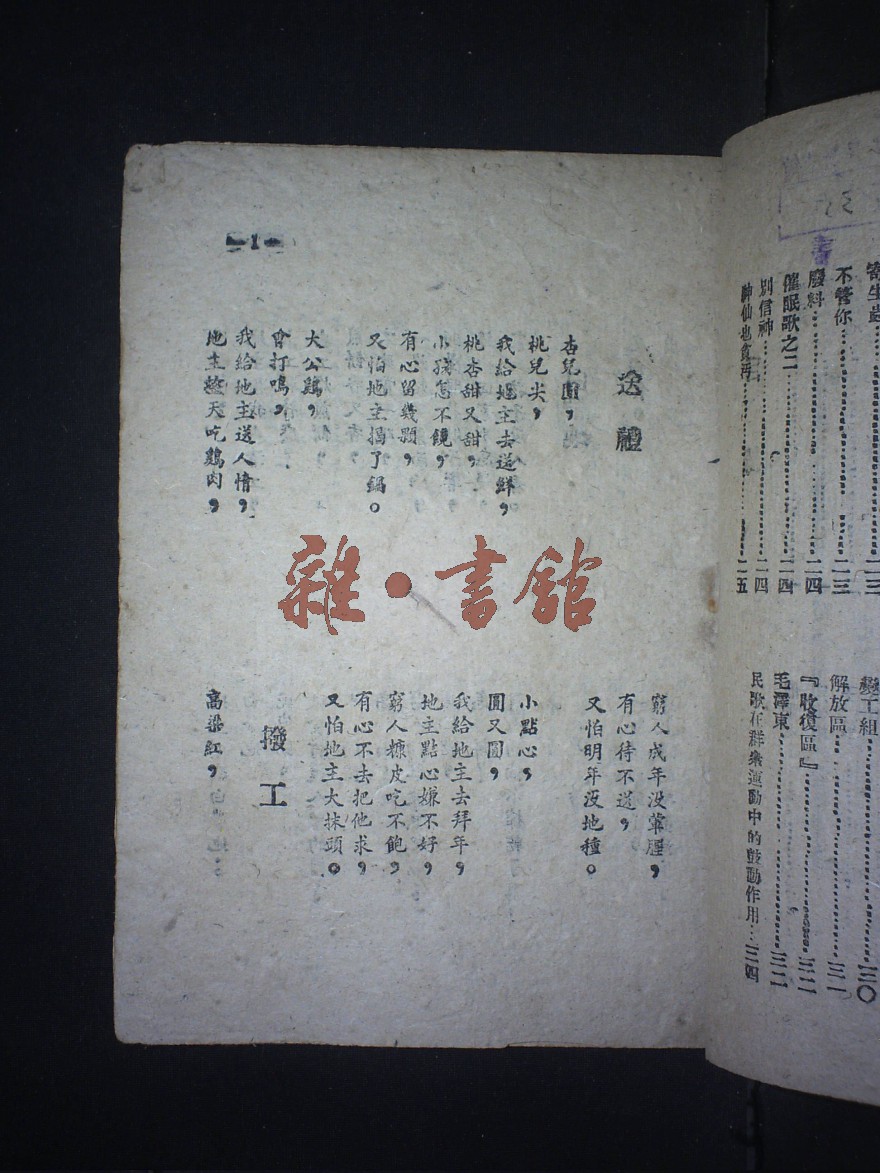 寄生虫……二三
不管你……二三
廢料……二四
催眠歌之二……二四
別信神……二四
神仙也貪污……二五
變工組……三〇
解放區……三一
『收復區』……三二
毛澤東……三二
民歌在群衆運動中的鼓動作用…三四
1
送禮
杏兒圓，
桃兒尖，
我給地主去送鮮，
桃杏甜又甜，
小孩怎不饞，
有心留幾顆，
又怕地主揭了鍋。
大公鷄，
會打鳴，
我給地主送人情，
地主整天吃鷄肉，
窮人成年没葷腥，
有心待不送，
又怕明年没地種。
小點心，
圓又圓，
我給地主去拜年，
地主點心嫌不好，
窮人糠皮吃不飽，
有心不去把他求，
又怕地主大抹頭。
撥工
高粱紅，
雜·書館